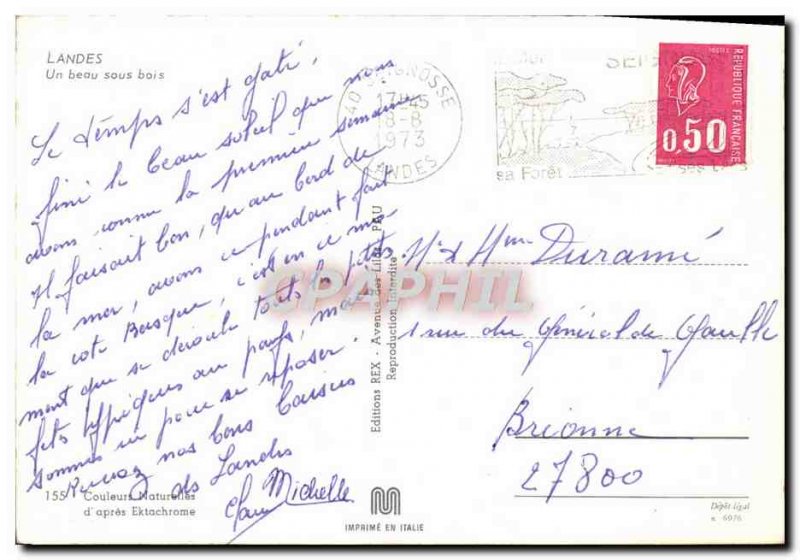 LANDES
Un beau sous bois
Le temps s'est gâté,
fini le beau soleil que nous
avons connu la première semaine
Il faisait bon, qu'au bord de
la mer, avons cependant fait
la cote Basque, c'est en ce mo
ment que se déroule toutes les fêtes
typiques au pays, mais
sommes ici pour se reposer.
Recevez nos bons baisers
des Landes
Michelle
155
Couleurs Naturelles
d'après Ektachrome
40 SEIGNOSSE
17H45
8-8
1973
LANDES
SEIGNOSSE
sa Forêt
ses
POSTES
REPUBLIQUE FRANÇAISE
0,50
Editions REX - Avenue des Lilas - PAU
Reproduction Interdite
CPAPHIL
Mr & Mme Duramé
1 rue du Général de Gaulle
Brionne
27800
IMPRIMÉ EN ITALIE
Dépôt légal
n. 6976